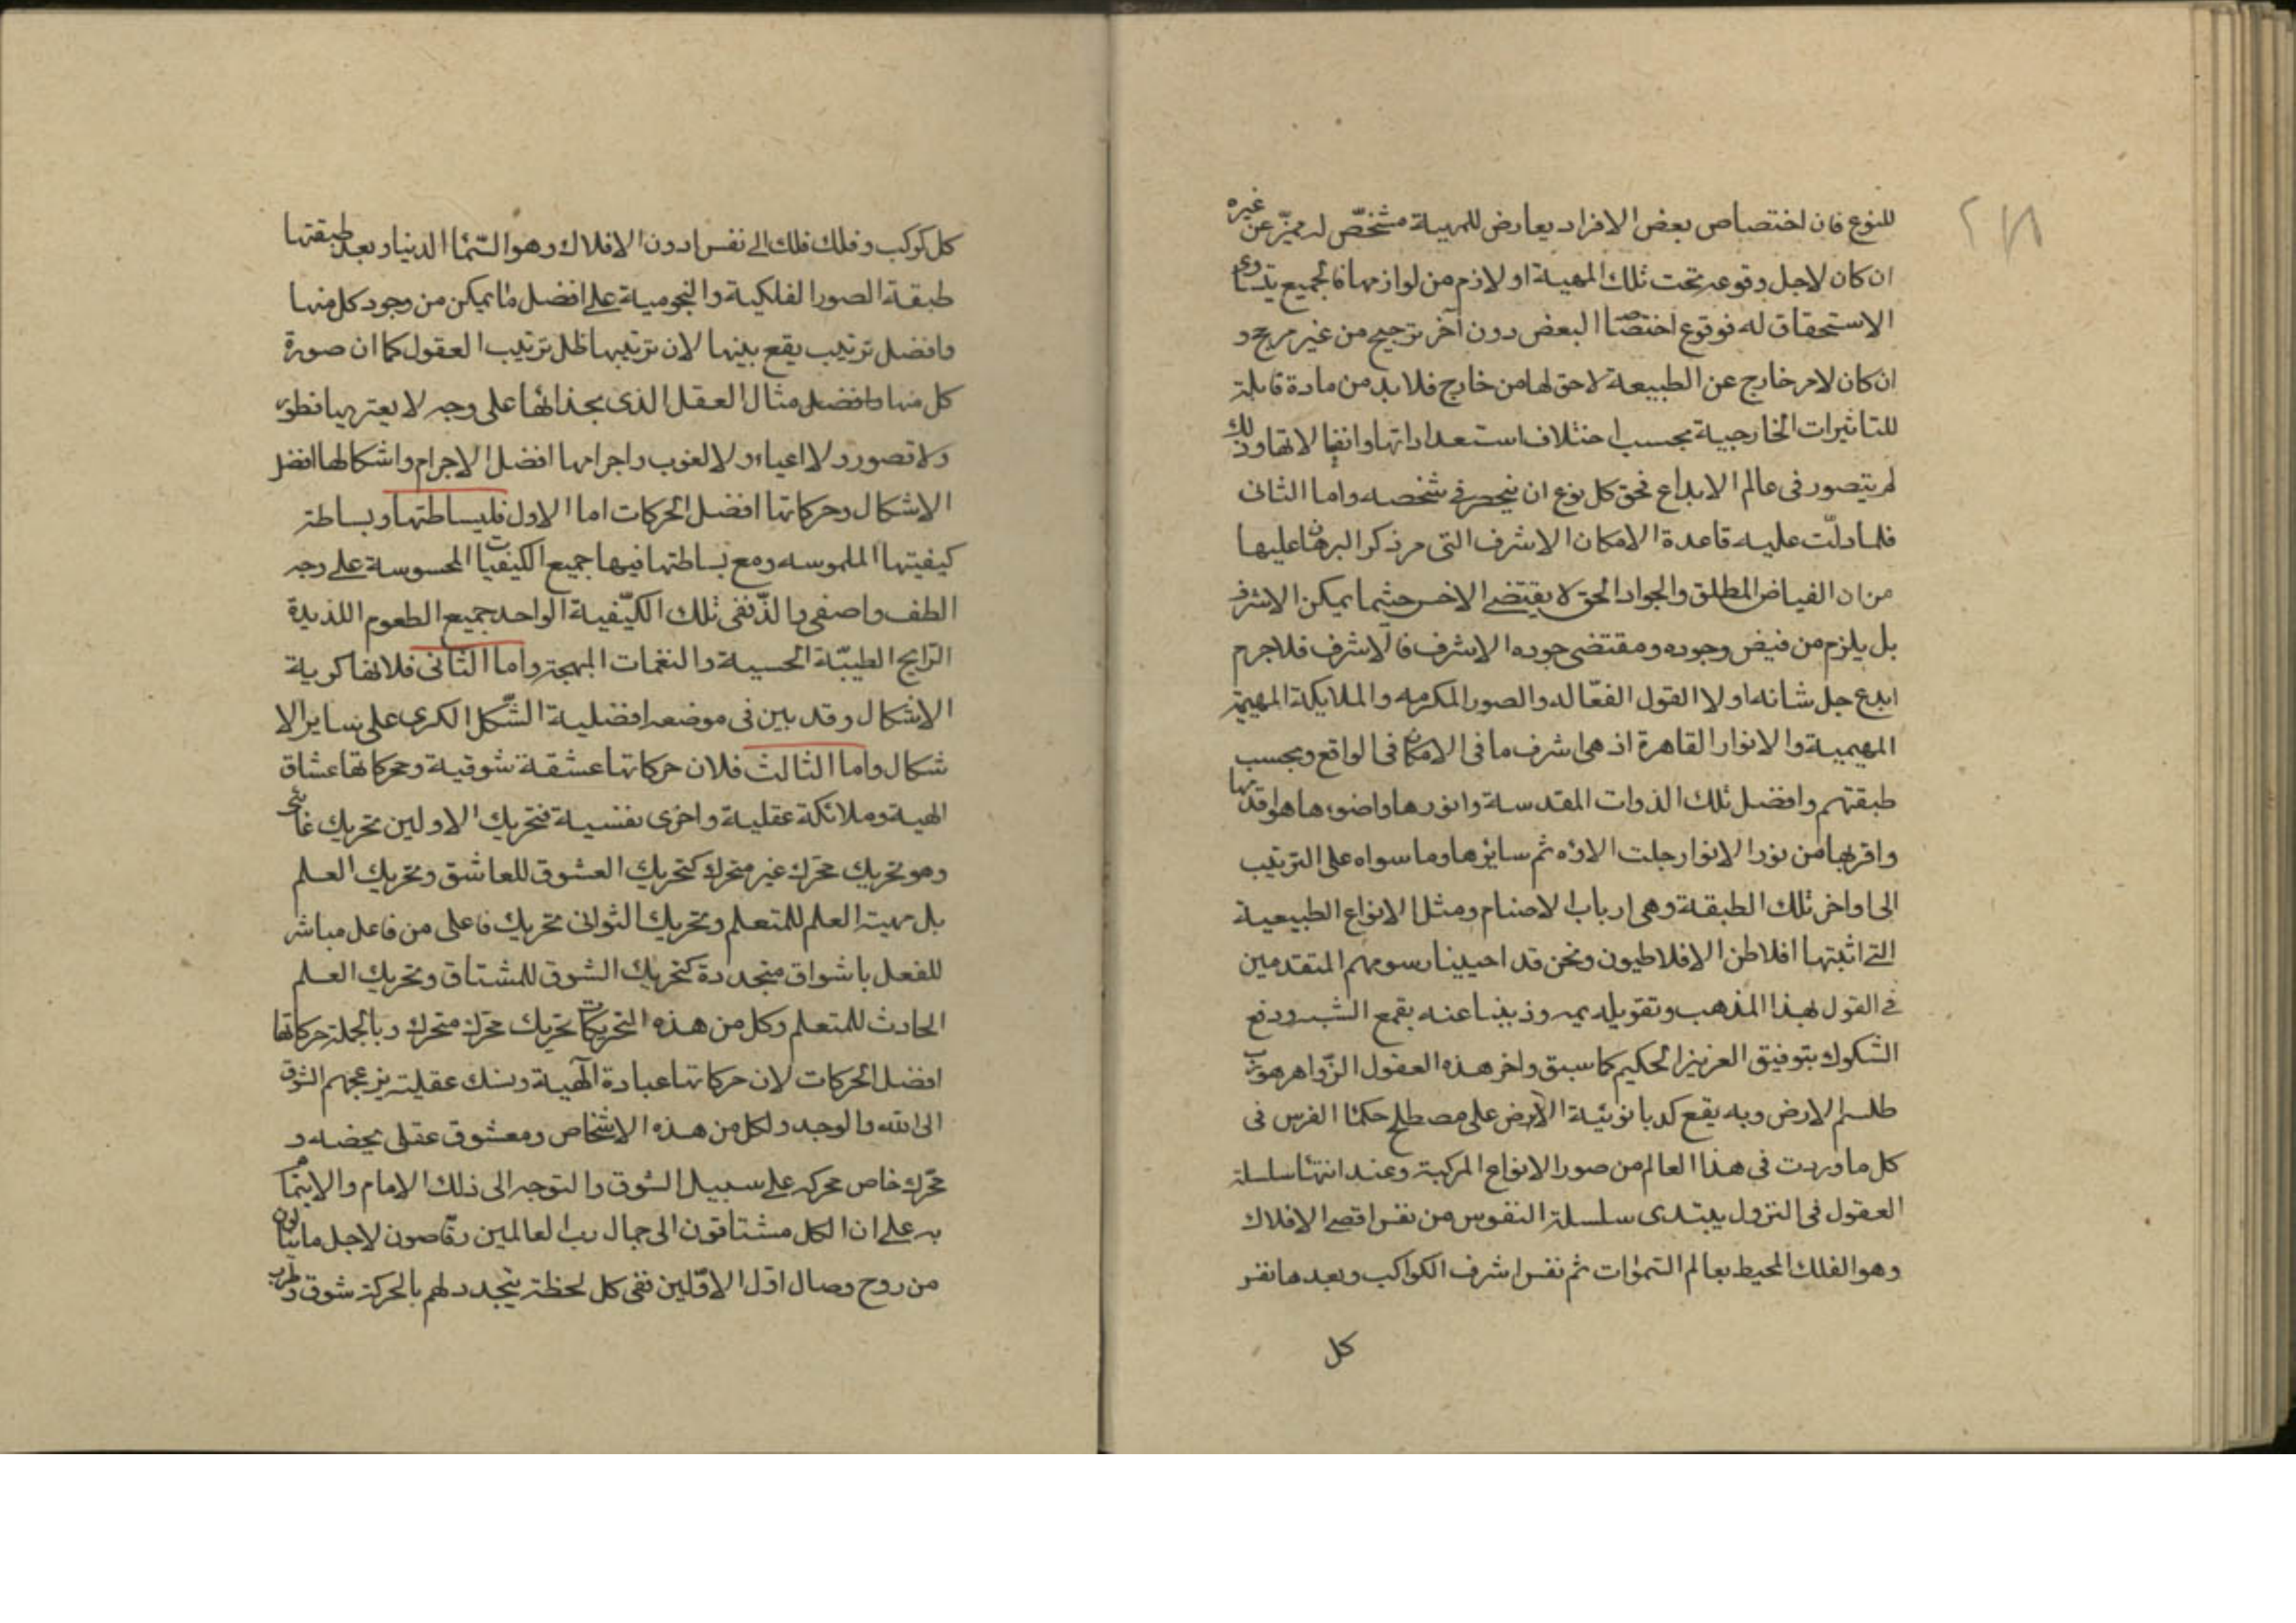 ٢١٨
للنوع فان اختصاص بعض الافراد بعارض للمهية مشخّص له مميّز عن غيره
ان كان لاجل وقوعه تحت تلك المهية او لازم من لوازمها فالجميع يتساوى
الاستحقاق له فوقوع اختصاص البعض دون آخر ترجيح من غير مرجح و
ان كان لامر خارج عن الطبيعة لاحق لها من خارج فلا بد من مادة قابلة
للتاثيرات الخارجية بحسب اختلاف استعداداتها وانفعالاتها وذلك
لم يتصور فى عالم الابداع فحق كل نوع ان ينحصر فى شخصه واما الثانى
فلما دلّت عليه قاعدة الامكان الاشرف التى مر ذكر البرهان عليها
من ان الفياض المطلق والجواد الحق لا يقتضى الاخس حيثما يمكن الاشرف
بل يلزم من فيض وجوده ومقتضى جوده الاشرف فالاشرف فلا جرم
ابدع جل شانه اولا القول الفعّاله والصور المكرمه والملايكة المهيمة
المهيمية والانوار القاهرة اذ هى اشرف ما فى الامكان فى الواقع وبحسب
طبقتهم وافضل تلك الذوات المقدسة وانورها واضوءها هو اقدمها
واقربها من نور الانوار جلت الاؤه ثم سايرها وما سواه على الترتيب
الى اواخر تلك الطبقة وهى ارباب الاصنام ومثل الانواع الطبيعية
التى اثبتها افلاطن الافلاطيون ونحن قد احيينا رسومهم المتقدمين
فى القول بهذا المذهب وتقويله يمه وذببنا عنه بقمع الشبه ودفع
الشكوك بتوفيق العزيز الحكيم كما سبق واخر هذه العقول الزّواهر هو رب
طلسم الارض وبه يقع كدبانوئية الارض على مصطلح حكما الفرس فى
كل ما وردت فى هذا العالم من صور الانواع المركبة وعند انتها سلسلة
العقول فى النزول يبتدى سلسلة النفوس من نفس اقصى الافلاك
وهو الفلك المحيط بعالم السموات ثم نفس اشرف الكواكب وبعدها نفس
كل
كل كوكب وفلك فلك الى نفس ادون الافلاك وهو السّما الدنيا وبعد طبقتها
طبقة الصور الفلكية والنجومية على افضل ما يمكن من وجود كل منها
وافضل ترتيب يقع بينها لان ترتيبها ظل ترتيب العقول كما ان صورة
كل منها وافضل مثال العقل الذى بحذائها على وجه لا يعتريها فطور
ولا قصور ولا اعياء ولا لغوب واجرامها افضل الاجرام واشكالها افضل
الاشكال وحركاتها افضل الحركات اما الاول فلبساطتها وبساطة
كيفيتها الملموسه ومع بساطتها فيها جميع الكيفيات المحسوسة على وجه
الطف واصفى والذّ ففى تلك الكيّفية الواحد جميع الطعوم اللذيذة
الرّايج الطيبّة الحسية والنغمات المبهجة واما الثانى فلانها كروية
الاشكال وقد بين فى موضعه افضلية الشّكل الكرى على ساير الا
شكال واما الثالث فلان حركاتها عشقة شوقية ومحركاتها عشاق
الهية وملائكة عقلية واخرى نفسية فتحريك الاولين تحريك غائى
وهو تحريك محرّك غير متحرك كتحريك العشوق للعاشق وتحريك العلم
بل مهية العلم للمتعلم وتحريك الثوانى تحريك فاعلى من فاعل مباشر
للفعل باشواق متجددة كتحريك الشوق للمشتاق وتحريك العلم
الحادث للمتعلم وكل من هذه التحريكات تحريك محرّك متحرك وبالجملة حركاتها
افضل الحركات لان حركاتها عبادة آلهية ونسك عقلية يزعجهم الشوق
الى الله والوجد ولكل من هذه الاشخاص ومعشوق عقلى يخصه و
محرّك خاص محركه على سبيل الشوق والتوجه الى ذلك الامام والايتمام
به على ان الكل مشتاقون الى جمال رب العالمين رقّاصون لاجل ما ينالون
من روح وصال اوّل الاوّلين ففى كل لحظة يتجدد لهم بالحركة شوق وطرب